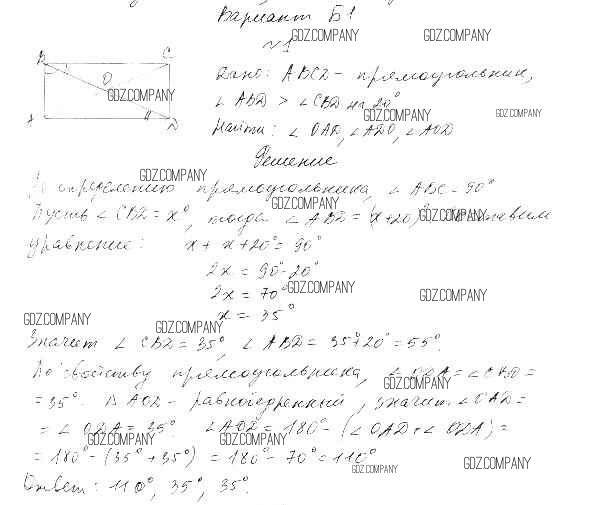 Вариант Б1
GDZ.COMPANY GDZ.COMPANY
№1
B C
O
GDZ.COMPANY
A D
Дано: ABCD - прямоугольник,
∠ ABD > ∠ CBD на 20°
GDZ.COMPANY GDZ.COMPANY
Найти: ∠ OAD, ∠ ADO, ∠ AOD
Решение
GDZ.COMPANY
По определению прямоугольника, ∠ ABC = 90°
GDZ.COMPANY
Пусть ∠ CBD = x°, тогда ∠ ABD = (x+20)°
GDZ.COMPANY
уравнение: x + x + 20° = 90°
2x = 90° - 20°
2x = 70°
GDZ.COMPANY GDZ.COMPANY
x = 35°
GDZ.COMPANY GDZ.COMPANY
Значит ∠ CBD = 35°, ∠ ABD = 35°+20° = 55°.
По свойству прямоугольника, ∠ ODA = ∠ CBD =
GDZ.COMPANY
= 35°. Δ AOD - равнобедренный, значит ∠ OAD =
= ∠ ODA = 35°. ∠ AOD = 180° - (∠ OAD + ∠ ODA) =
GDZ.COMPANY GDZ.COMPANY
= 180° - (35° + 35°) = 180° - 70° = 110°
GDZ.COMPANY GDZ.COMPANY
Ответ: 110°, 35°, 35°.